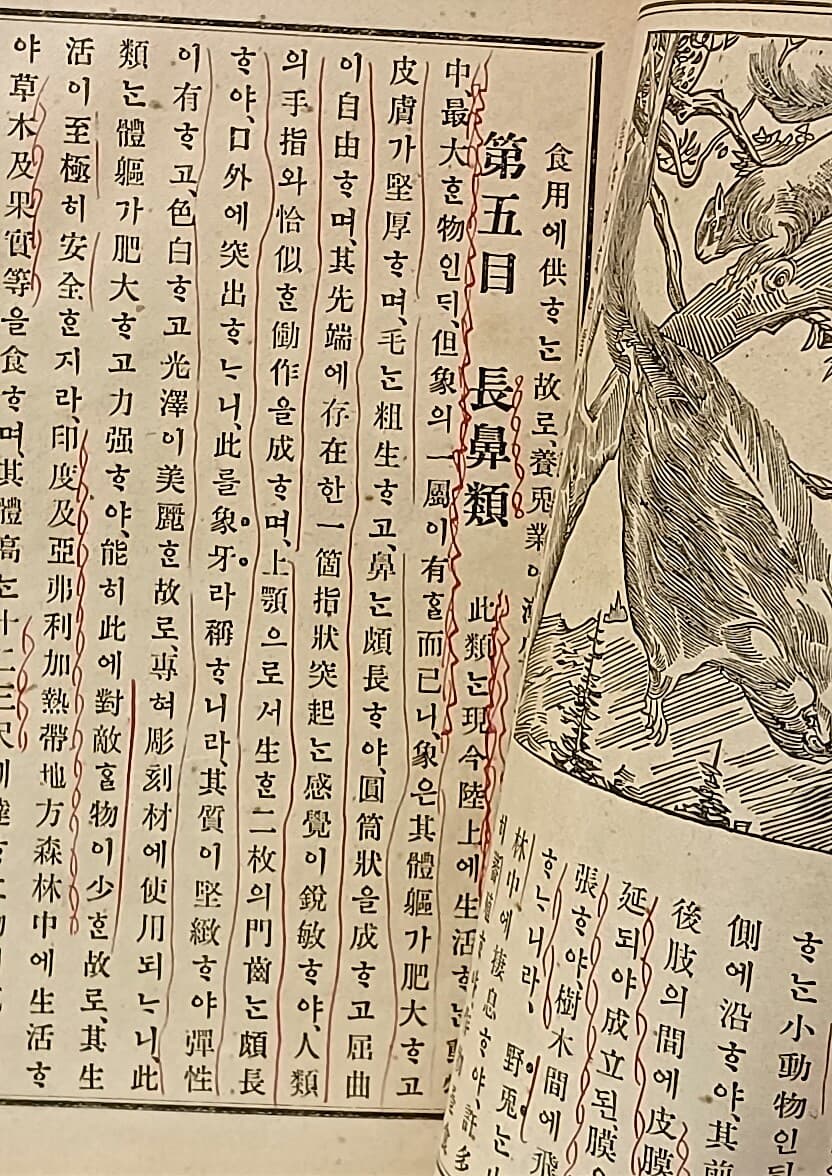 ᄒᆞᄂᆞᆫ小動物인ᄃᆡ
側에沿ᄒᆞ야、其前
後肢의間에皮膜
延되야成立된、膜으
張ᄒᆞ야、樹木間에飛
ᄒᆞᄂᆞ니라、 野兎ᄂᆞᆫ
林中에棲息ᄒᆞ야、
食用에供ᄒᆞᄂᆞᆫ故로、養兎業이
第五目 長鼻類 此類ᄂᆞᆫ現今陸上에生活ᄒᆞᄂᆞᆫ
中、最大ᄒᆞᆫ物인ᄃᆡ、但象의一屬이有ᄒᆞᆯ而已니、象은其體軀가肥大ᄒᆞ고
皮膚가堅厚ᄒᆞ며、毛ᄂᆞᆫ粗生ᄒᆞ고、鼻ᄂᆞᆫ頗長ᄒᆞ야、圓筒狀을成ᄒᆞ고屈曲
이自由ᄒᆞ며、其先端에存在한一箇指狀突起ᄂᆞᆫ感覺이銳敏ᄒᆞ야、人類
의手指와恰似ᄒᆞᆫ働作을成ᄒᆞ며、上顎으로서生ᄒᆞᆫ二枚의門齒ᄂᆞᆫ頗長
ᄒᆞ야、口外에突出ᄒᆞᄂᆞ니、此를象牙라稱ᄒᆞ니라、其質이堅緻ᄒᆞ야彈性
이有ᄒᆞ고、色白ᄒᆞ고光澤이美麗ᄒᆞᆫ故로、專혀彫刻材에使用되ᄂᆞ니、此
類ᄂᆞᆫ體軀가肥大ᄒᆞ고力强ᄒᆞ야、能히此에對敵ᄒᆞᆯ物이少ᄒᆞᆫ故로、其生
活이至極히安全ᄒᆞᆫ지라、印度及亞弗利加熱帶地方森林中에生活ᄒᆞ
야草木及果實等을食ᄒᆞ며、其體高ᄂᆞᆫ十二三尺